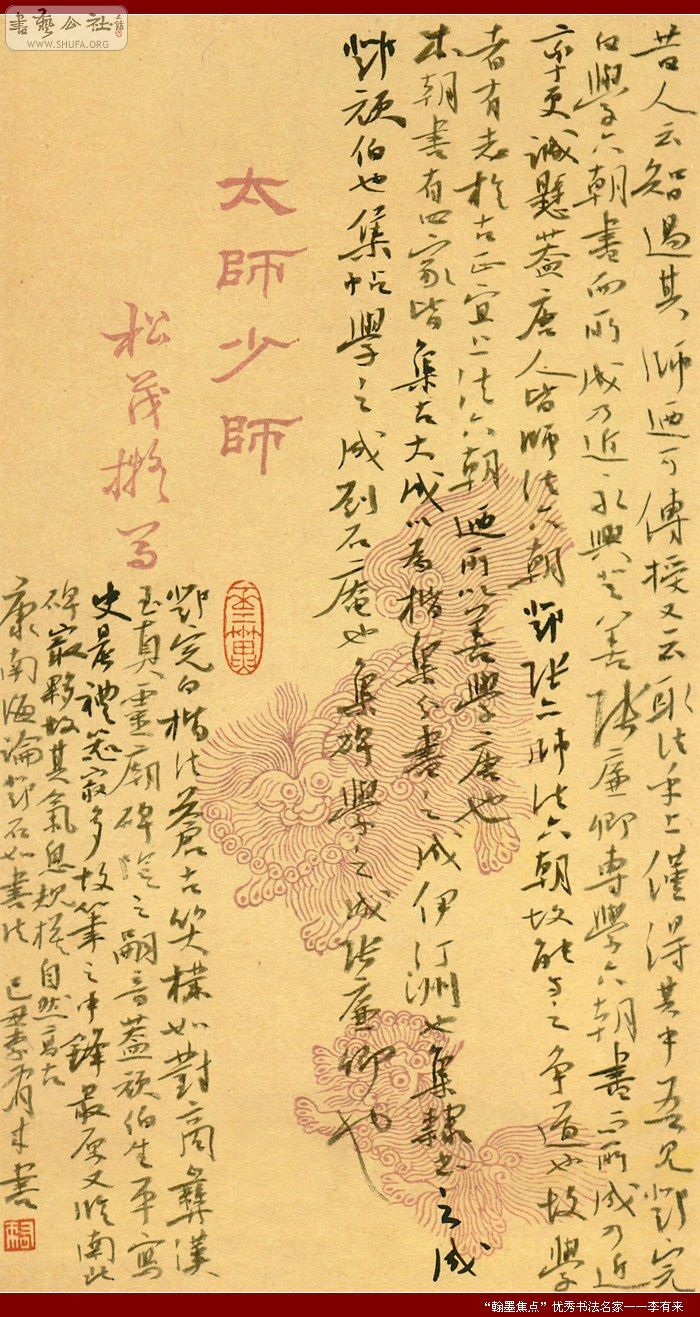 書藝公社
WWW.SHUFA.ORG
昔人云智過其師廼可傳授又云取法乎上僅得其中吾見鄧完
白學六朝書而所成乃近永興登善張廉卿專學六朝書而所成乃近
率更誠懸蓋唐人皆師法六朝鄧張亦師法六朝故能與之爭道也故學
者有志於古正宜上法六朝廼所以善學唐也
本朝書有四家皆集古大成以為楷集分書之成伊汀洲也集隸書之成
鄧頑伯也集帖學之成劉石庵也集碑學之成張廉卿也
太師少師
松茂擬写
鄧完白楷法蒼古質樸如對商彝漢
玉真靈廟碑陰之嗣音蓋頑伯生平寫
史晨禮器最多故筆之中鋒最厚又臨南北
碑最夥故其氣息規模自然高古
康南海論鄧石如書法 己丑李有来書
“翰墨焦点”优秀书法名家——李有来